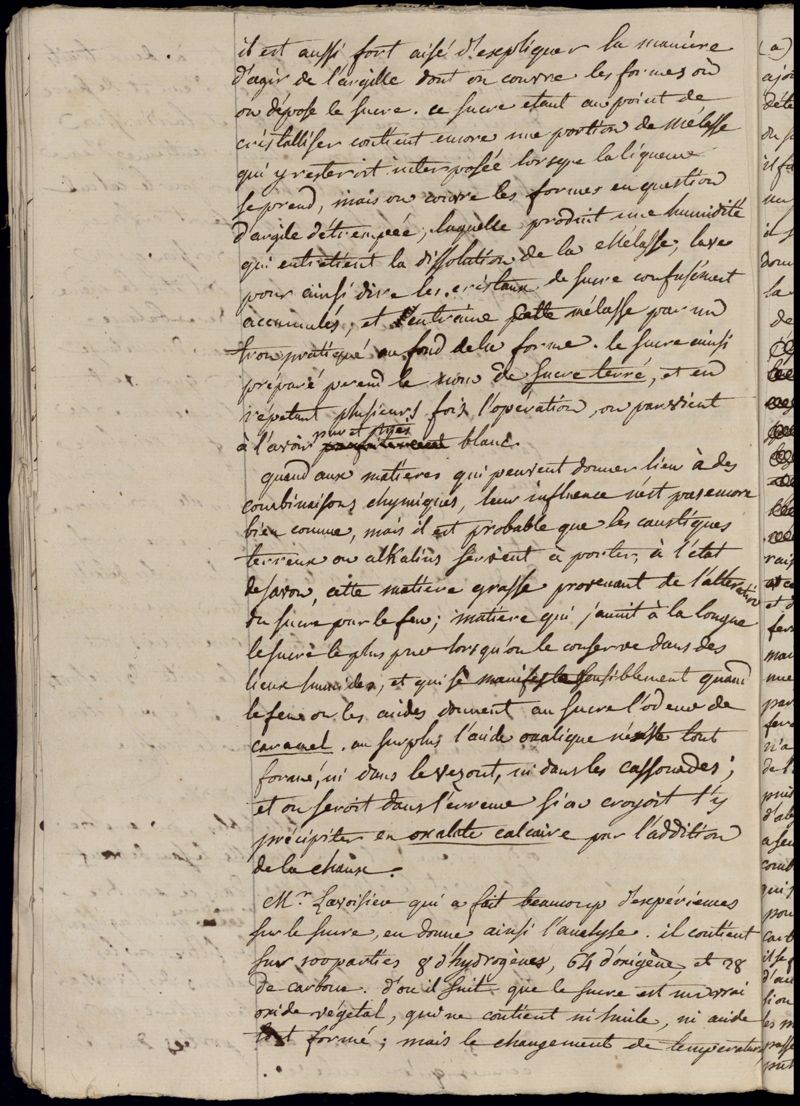 il est aussi fort aisé d'expliquer la manière
d'agir de l'argille dont on couvre les formes où
on dépose le sucre. ce sucre etant au point de
cristalliser contient encore une portion de mélasse
qui y resteroit interposée lorsque la liqueur
se prend, mais on couvre les formes en question
d'argile détrempeé, laquelle produit une humidité
qui entretient la dissolution de la Mélasse, lave
pour ainsi dire les cristaux de sucre confusément
accumulés, et entraine cette mélasse par un
trou pratiqué au fond de la forme. le sucre ainsi
préparé perend le nom de sucre terré, et en
répetant plusieurs fois l'opération, on parvient
à l'avoir pur et très
parfaitement blanc.
quand aux matieres qui peuvent donner lieu à des
combinaisons chymiques, leur influence n'est pas encore
bien connue, mais il est probable que les caustiques
terreux ou alkalins servent à porter, à l'état
de savon, cette matiere grasse provenant de l'alteration
du sucre pour le feu; matiere qui jaunit à la longue
le sucre le plus pur lorsqu'on le conserve dans des
lieux humides, et qui se manifeste sensiblement quand
le feu ou les acides donnent au sucre l'odeur de
caramel. au surplus l'acide oxalique n'existe tout
formé, ni dans le vezout, ni dans les cassonades;
et on seroit dans l'erreur si on croyoit l'y
précipiter en oxalate calcaire par l'addition
de la chaux.
Mr. Lavoisier qui a fait beaucoup d'expériences
sur le sucre, en donne ainsi l'analyse. il contient
sur 100 parties 8 d'hydrogènes, 64 d'oxigène, et 28
de carbone. d'ou il suit que le sucre est un vrai
oxide végétal, qui ne contient ni huile, ni acide
tout formé; mais le changement de temperature